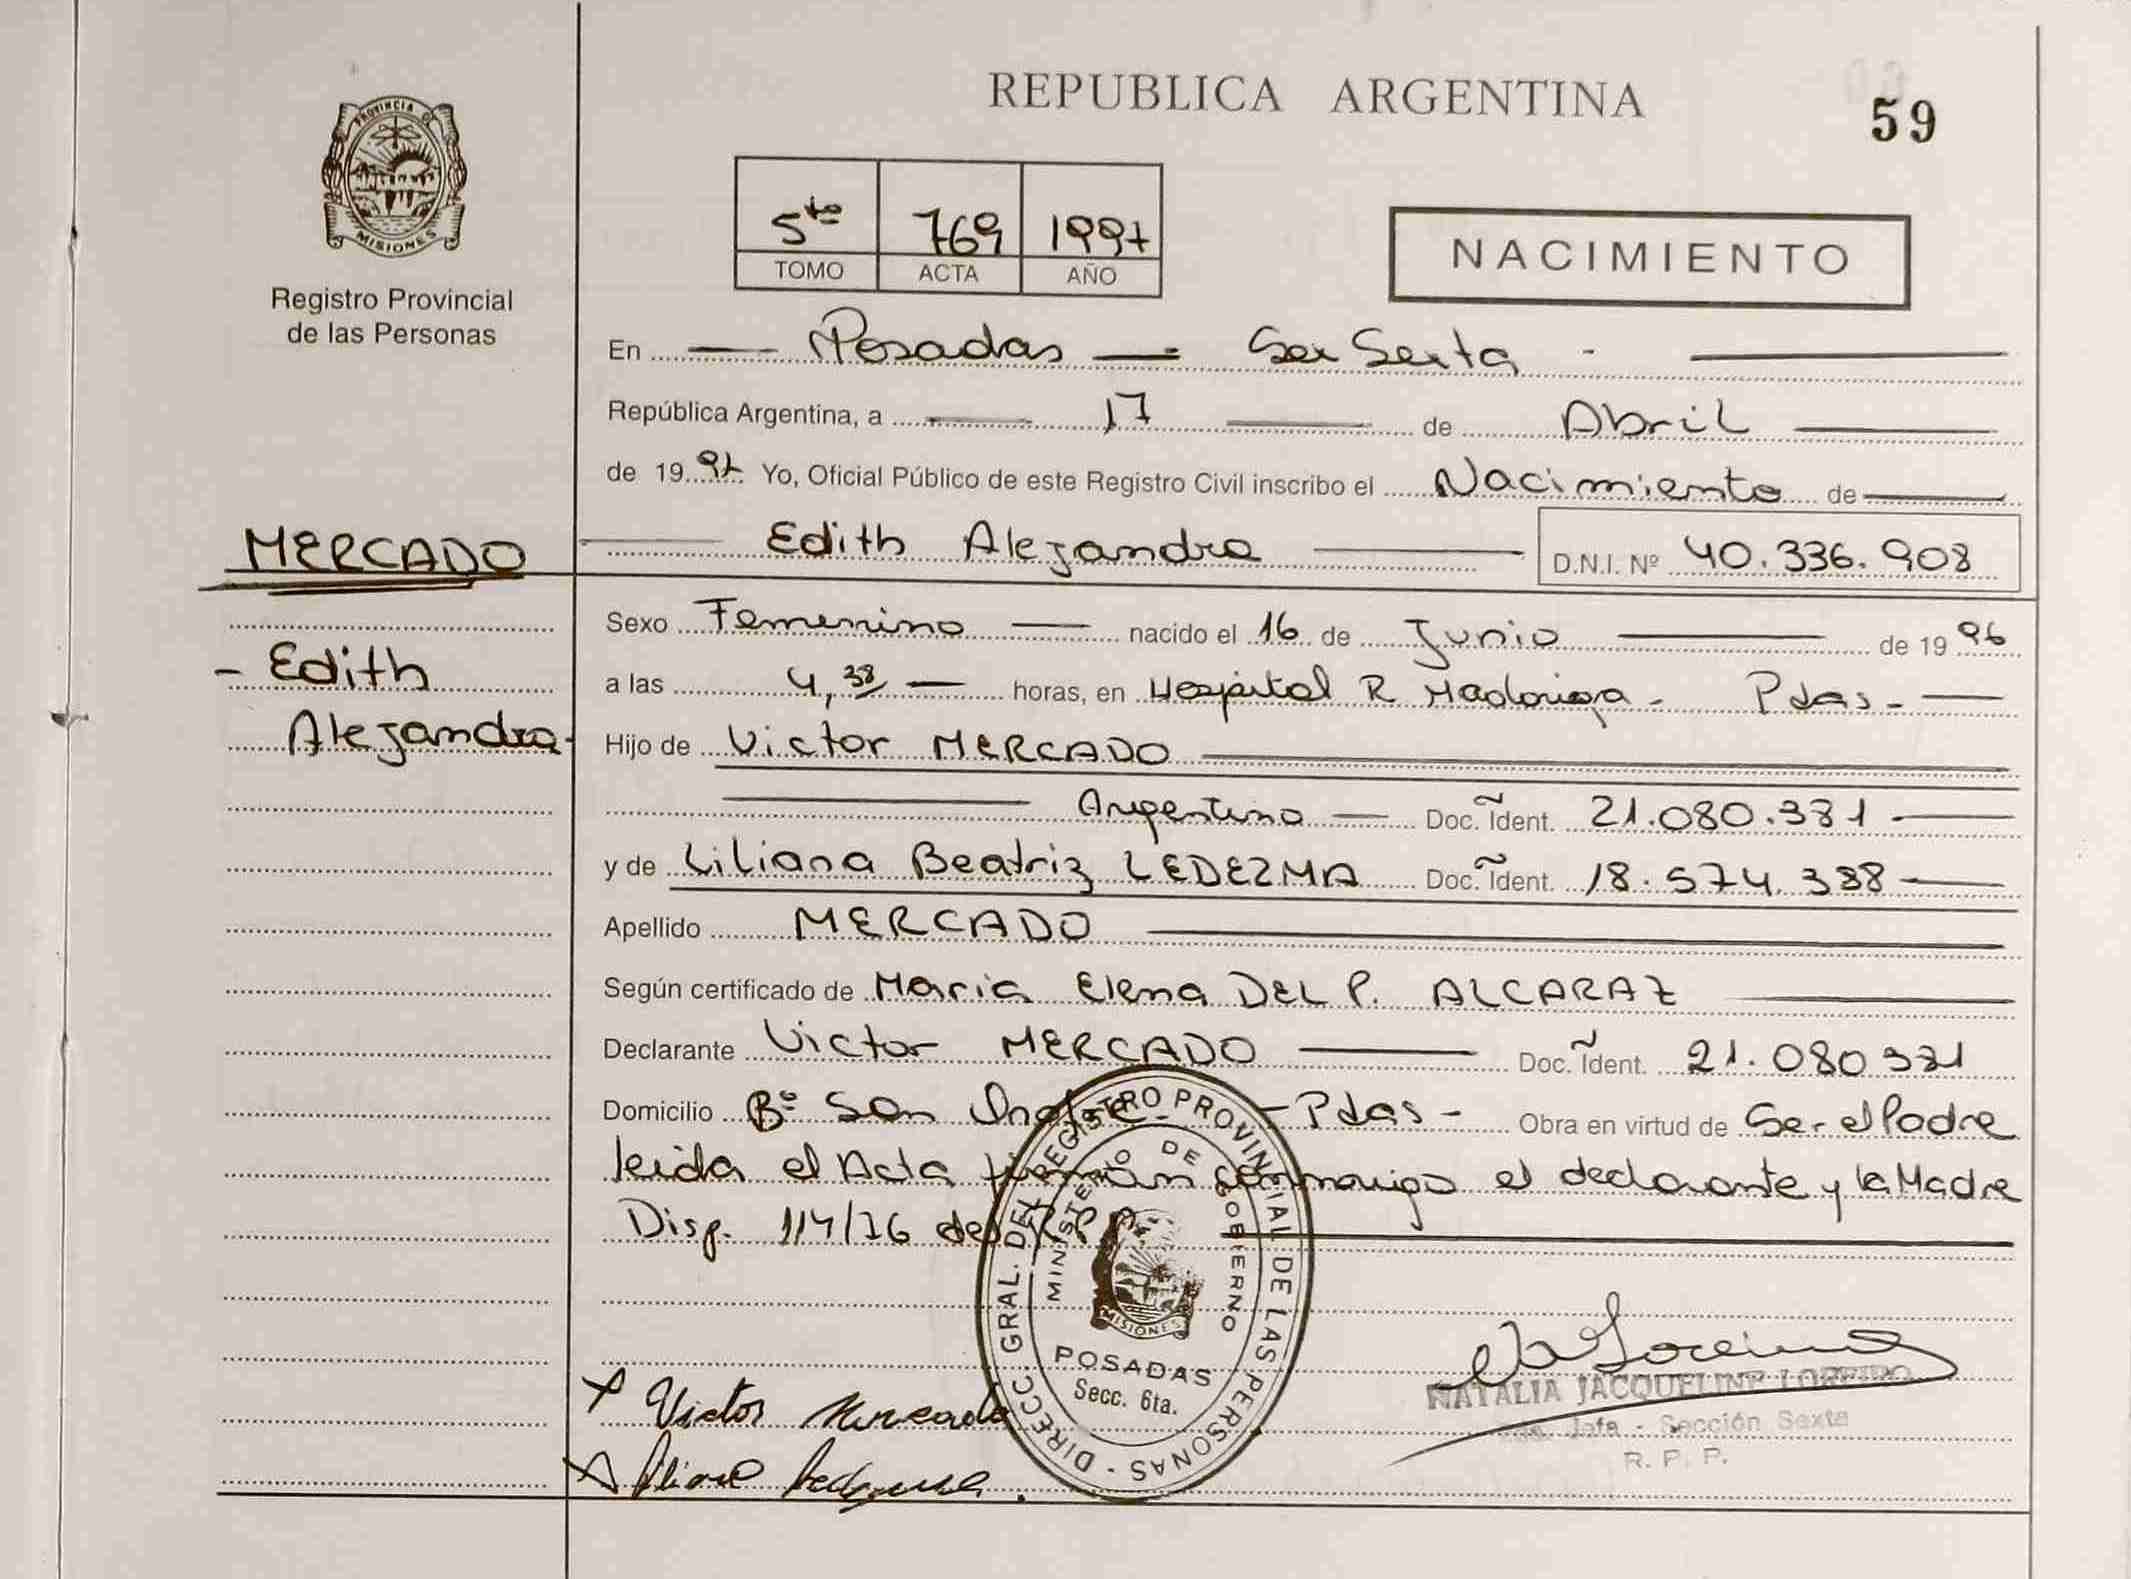 REPUBLICA ARGENTINA
59
PROVINCIA DE
MISIONES
Registro Provincial
de las Personas
5to 769 1997
TOMO ACTA AÑO
NACIMIENTO
En Posadas — Secc Sexta -
República Argentina, a 17 de Abril
de 1997 Yo, Oficial Público de este Registro Civil inscribo el Nacimiento de
MERCADO
Edith Alejandra D.N.I. Nº 40.336.908
Sexo Femenino nacido el 16 de Junio de 1996
- Edith
Alejandra-
a las 4,38 horas, en Hospital R Madariaga - Pdas-
Hijo de Victor MERCADO
Argentino Doc. Ident. 21.080.331
y de Liliana Beatriz LEDEZMA Doc. Ident. 18.574.338
Apellido MERCADO
Según certificado de Maria Elena DEL P. ALCARAZ
Declarante Victor MERCADO Doc. Ident. 21.080331
Domicilio Bº San -Pdas- Obra en virtud de Ser el Padre
leida el Acta firman conmigo el declarante y la Madre
Disp. 114/76 del R.P.P.
DIRECC. GRAL. DEL REGISTRO PROVINCIAL DE LAS PERSONAS -
MINISTERIO DE GOBIERNO
MISIONES
POSADAS
Secc. 6ta.
Victor Mercado
NATALIA JACQUELINE LOREIRO
Jefa - Sección Sexta
R. P. P.